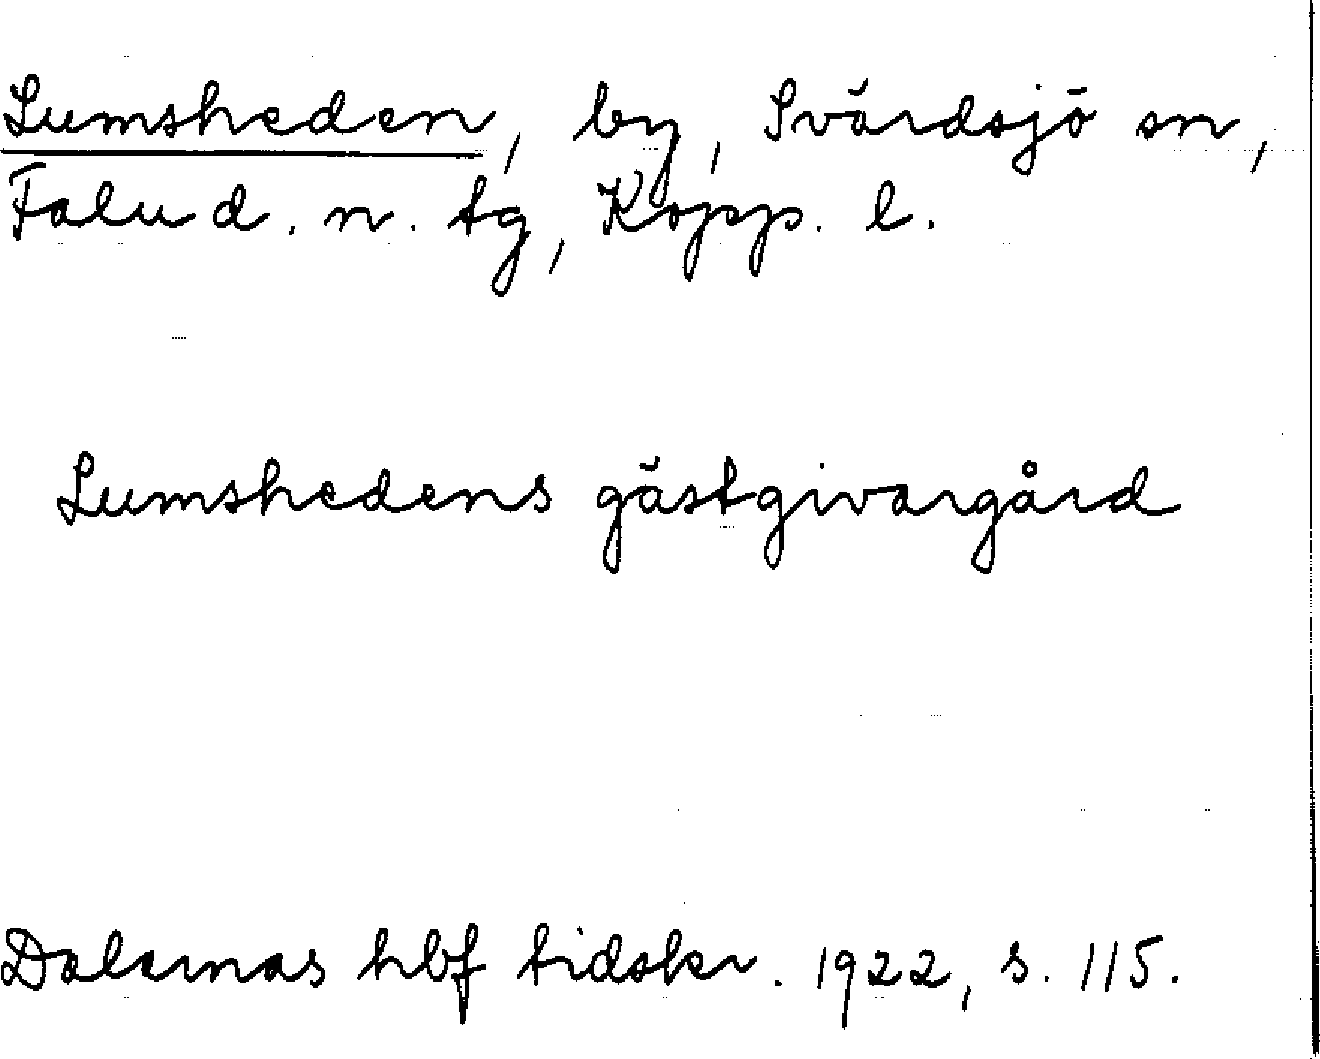 Lumsheden, by, Svärdsjö sn,
Falu d. n. tg, Kopp. l.
Lumshedens gästgivargård
Dalarnas hbf tidskr. 1922, s. 115.